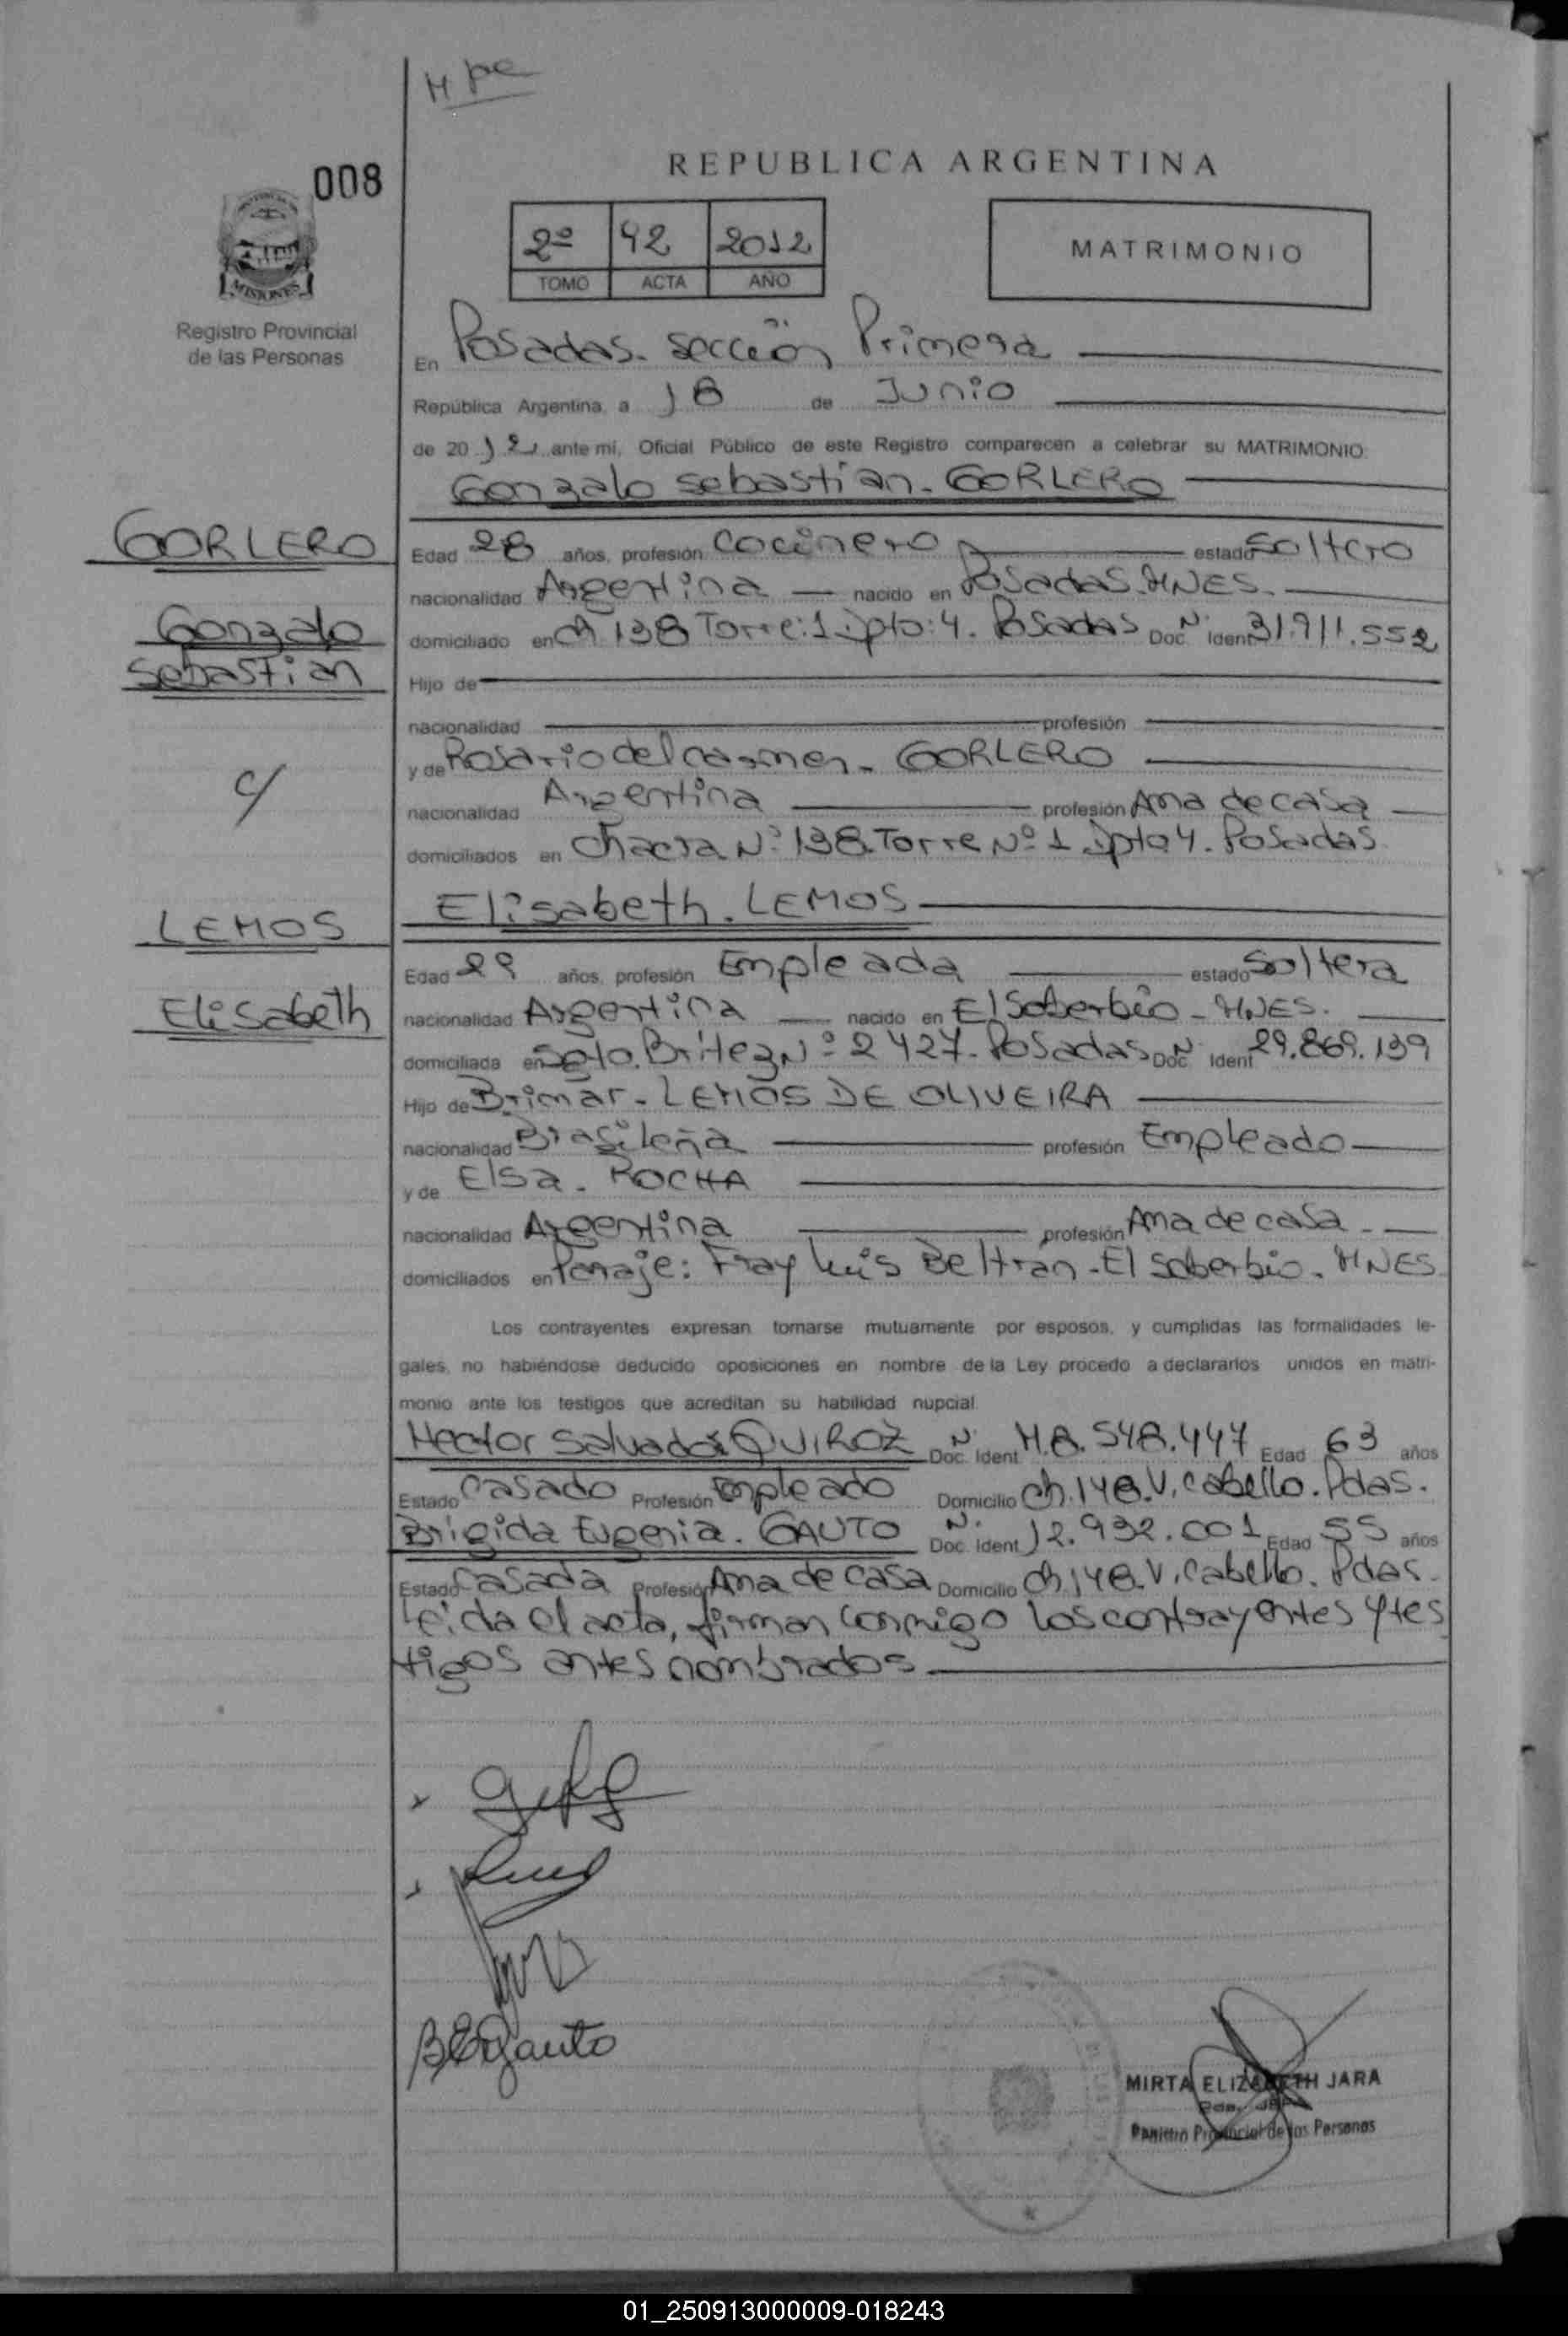 H pe
008
REPUBLICA ARGENTINA
2º 42 2012
TOMO ACTA AÑO
MATRIMONIO
MISIONES
Registro Provincial
de las Personas
En Posadas. Sección Primera
República Argentina, a 18 de Junio
de 2012 ante mí, Oficial Público de este Registro comparecen a celebrar su MATRIMONIO:
Gonzalo Sebastián. GORLERO
GORLERO
Edad 28 años, profesión Cocinero estado Soltero
nacionalidad Argentina nacido en Posadas. MNES.
Gonzalo
domiciliado en Ch 138 Torre: 1 Dpto: 4. Posadas Doc. Nº Ident 31.911.552
Sebastian
Hijo de
nacionalidad profesión
y de Rosario del carmen. GORLERO
c/
nacionalidad Argentina profesión Ama de casa
domiciliados en Chacra Nº 138 Torre Nº 1 Dpto 4. Posadas
LEMOS
Elisabeth. LEMOS
Edad 29 años, profesión Empleada estado Soltera
Elisabeth
nacionalidad Argentina nacido en El Soberbio - MNES.
domiciliada en Sgto. Britez Nº 2427. Posadas Doc. Nº Ident 29.869.139
Hijo de Brimar. LEMOS DE OLIVEIRA
nacionalidad Brasileña profesión Empleado
y de Elsa. ROCHA
nacionalidad Argentina profesión Ama de casa
domiciliados en Paraje: Fray Luis Beltran. El Soberbio. MNES
Los contrayentes expresan tomarse mutuamente por esposos, y cumplidas las formalidades le-
gales, no habiéndose deducido oposiciones en nombre de la Ley procedo a declararlos unidos en matri-
monio ante los testigos que acreditan su habilidad nupcial.
Hector Salvador QUIROZ Doc. Nº Ident M.8.548.447 Edad 63 años
Estado Casado Profesión Empleado Domicilio Ch.148.V.Cabello. Pdas.
Brigida Eugenia. GAUTO Doc. Nº Ident 12.932.001 Edad 55 años
Estado Casada Profesión Ama de casa Domicilio Ch.148.V.Cabello. Pdas.
Leida el acta, firman conmigo los contrayentes y tes
tigos antes nombrados
BEGauto
MIRTA ELIZABETH JARA
Registro Provincial de las Personas
01_250913000009-018243